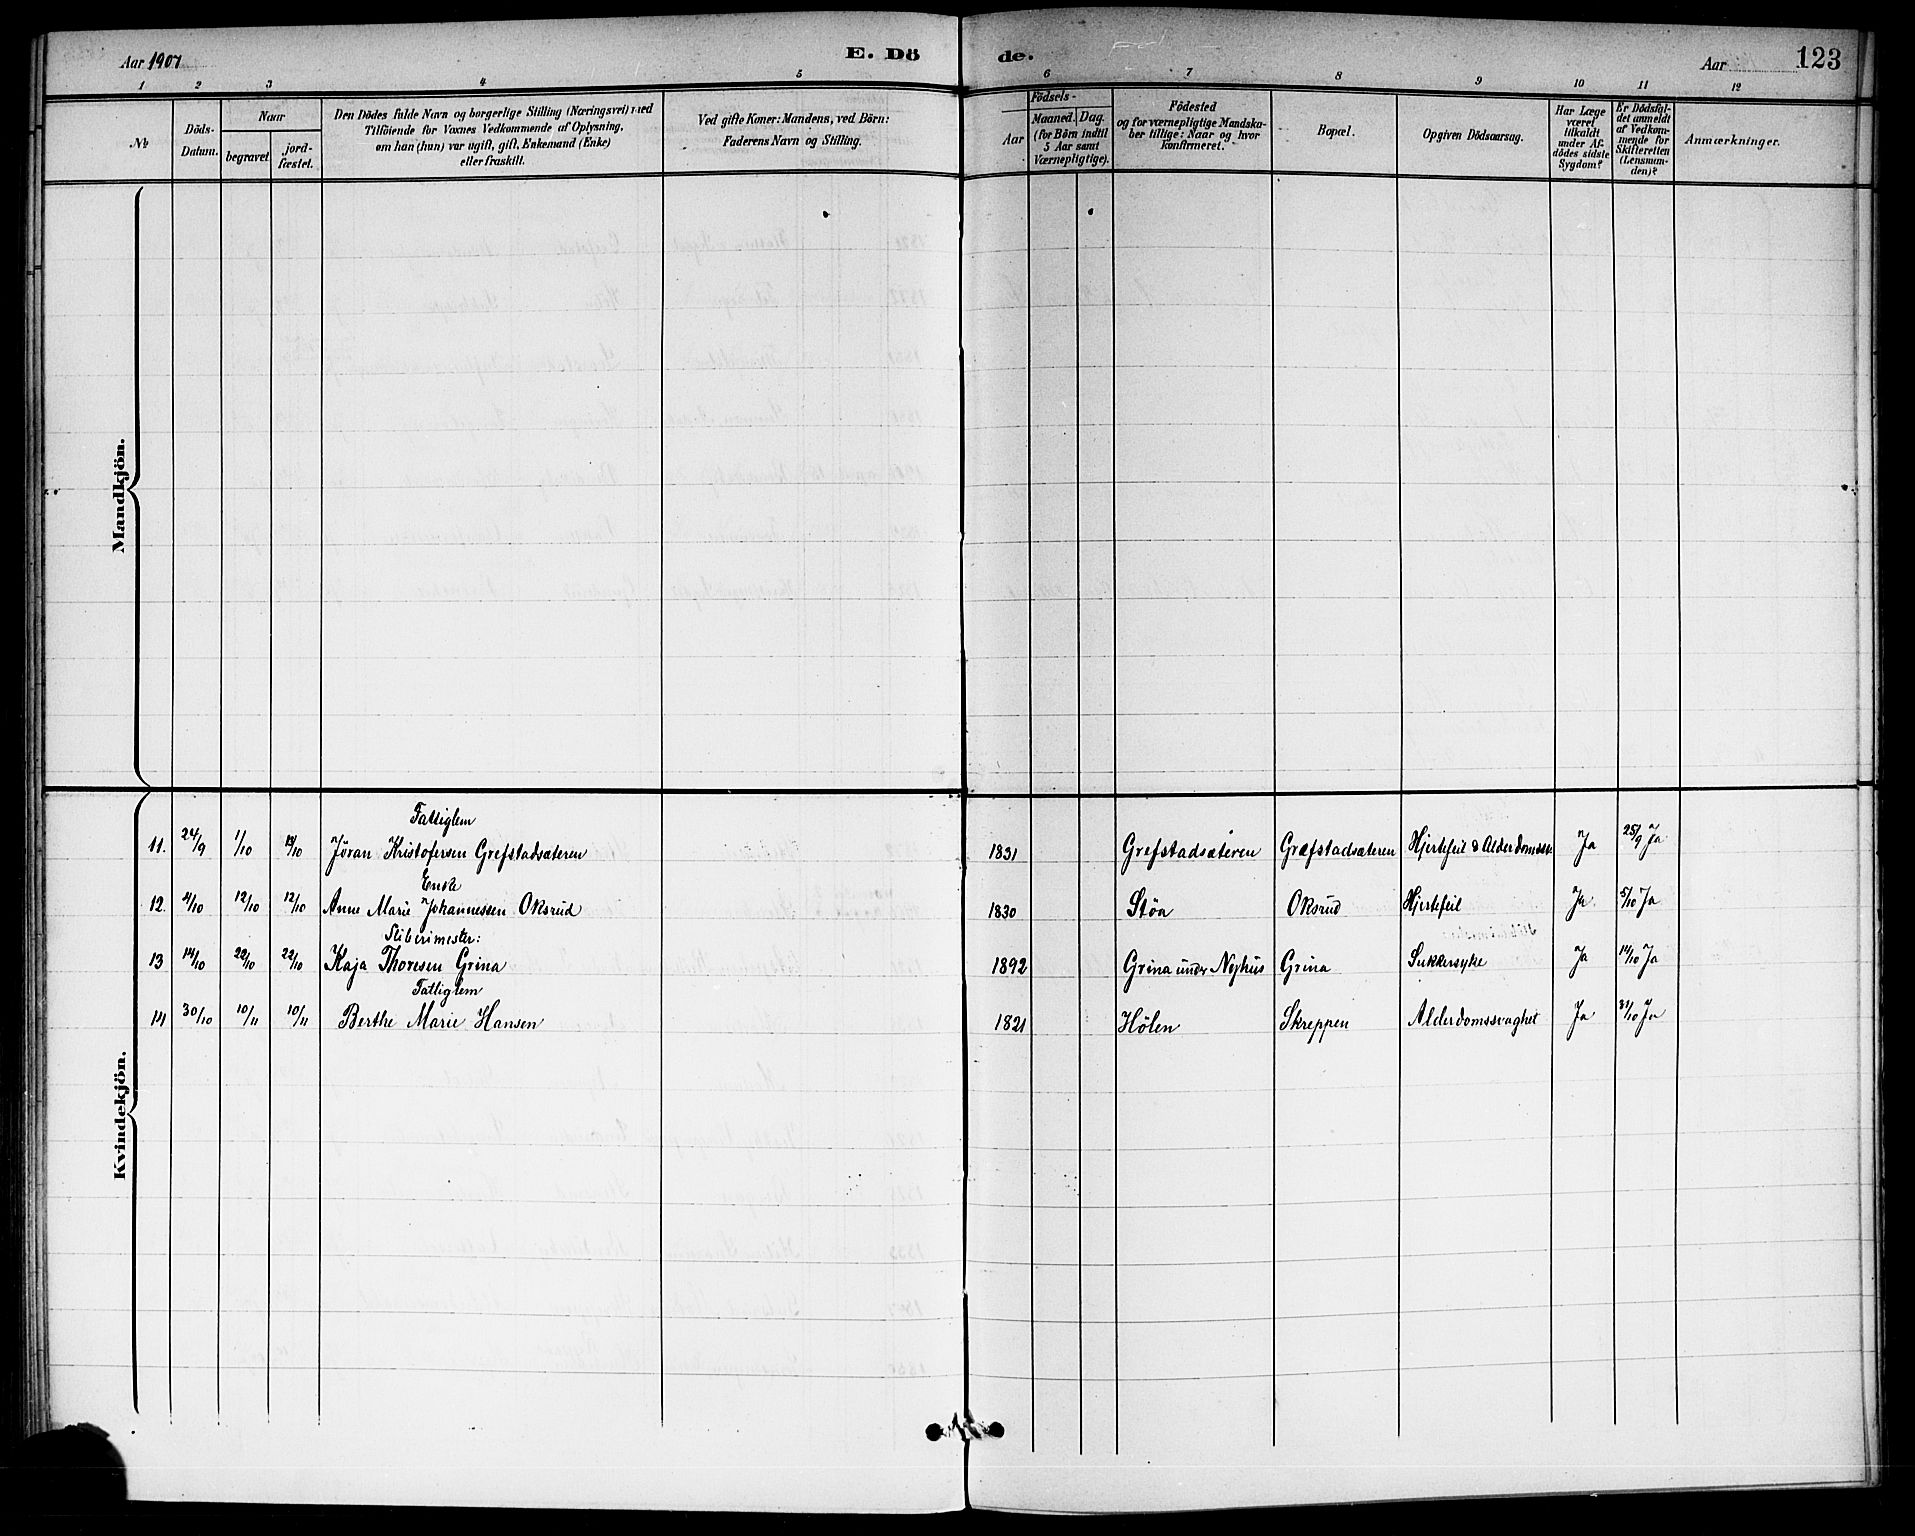 Aar 1907
E. Dö
de.
Aar
123
1 2 3 4 5 6 7 8 9 10 11 12
No
Döds-
Datum.
Naar
begravet
jord-
fæstet.
Den Dödes fulde Navn og borgerlige Stilling (Næringsvei) med
Tilföiende for Voxnes Vedkommende af Oplysning,
om han (hun) var ugift, gift, Enkemand (Enke)
eller fraskilt.
Ved gifte Koner: Mandens, ved Börn:
Faderens Navn og Stilling.
Födsels-
Aar
Maaned. Dag.
(for Börn indtil
5 Aar samt
Værnepligtige).
Födested
og for værnepligtige Mandska-
ber tillige: Naar og hvor
konfirmeret.
Bopæl.
Opgiven Dödsaarsag.
Har Læge
været
tilkaldt
under Af-
dödes sidste
Sygdom?
Er Dödsfal-
det anmeldt
af Vedkom-
mende for
Skifteretten
(Lensman-
den)?
Anmærkninger.
Mandkjön.
Kvindekjön.
Fattiglem
11. 24/9 1/10 13/10 Jöran Kristofersen Grefstadsæteren 1831 Grefstadsæteren Græfstadsæteren Hjertefeil & Alderdomssv. Ja 25/9 Ja
Enke
12. 4/10 12/10 12/10 Anne Marie Johannessen Oksrud 1830 Stöa Oksrud Hjertefeil Ja 5/10 Ja
Sliberimester:
13 14/10 22/10 22/10 Kaja Thoresen Grina 1892 Grina under Nøjhus Grina Sukkersyke Ja 14/10 Ja
Fattiglem
14 30/10 10/11 10/11 Berthe Marie Hansen 1821 Hölen Skreppen Alderdomssvaghet Ja 31/10 Ja